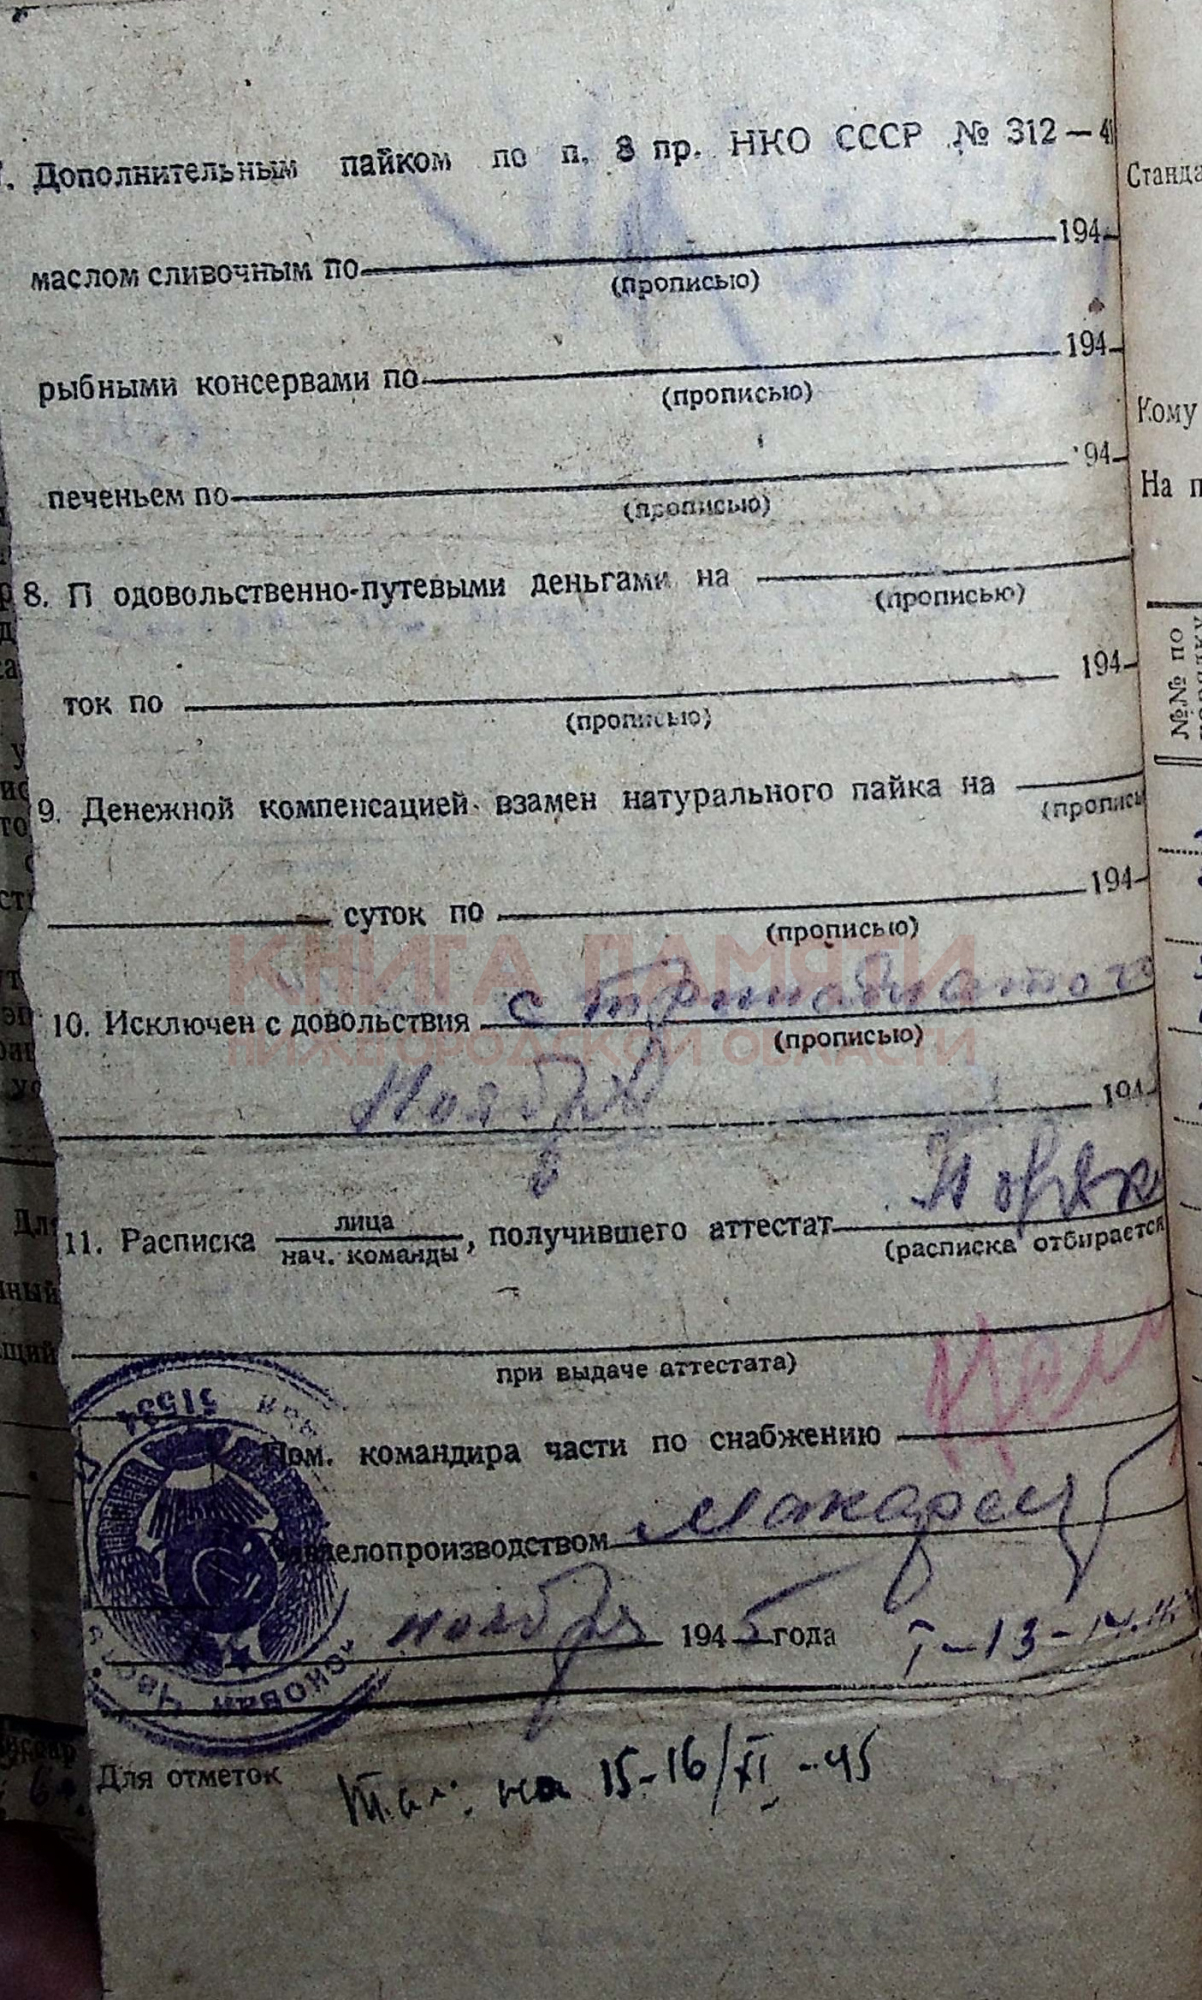 7. Дополнительным пайком по п. 3 пр. НКО СССР № 312—4
маслом сливочным по 194
(прописью)
рыбными консервами по 194
(прописью)
печеньем по 94
(прописью)
8. П одовольственно-путевыми деньгами на
(прописью)
ток по 194
(прописью)
9. Денежной компенсацией взамен натурального пайка на
(прописы
суток по 194
(прописью)
КНИГА ПАМЯТИ
НИЖЕГОРОДСКОЙ ОБЛАСТИ
10. Исключен с довольствия с тринадцатого
(прописью)
Ноября 194
11. Расписка лица
нач. команды, получившего аттестат
(расписка отбирается
при выдаче аттестата)
51534
Пом. командира части по снабжению
Завделопроизводством
ноября 1945 года I-13-14.
Войсковая часть
Для отметок
на 15-16/XI-45
Станда
Кому
На п
№№ по